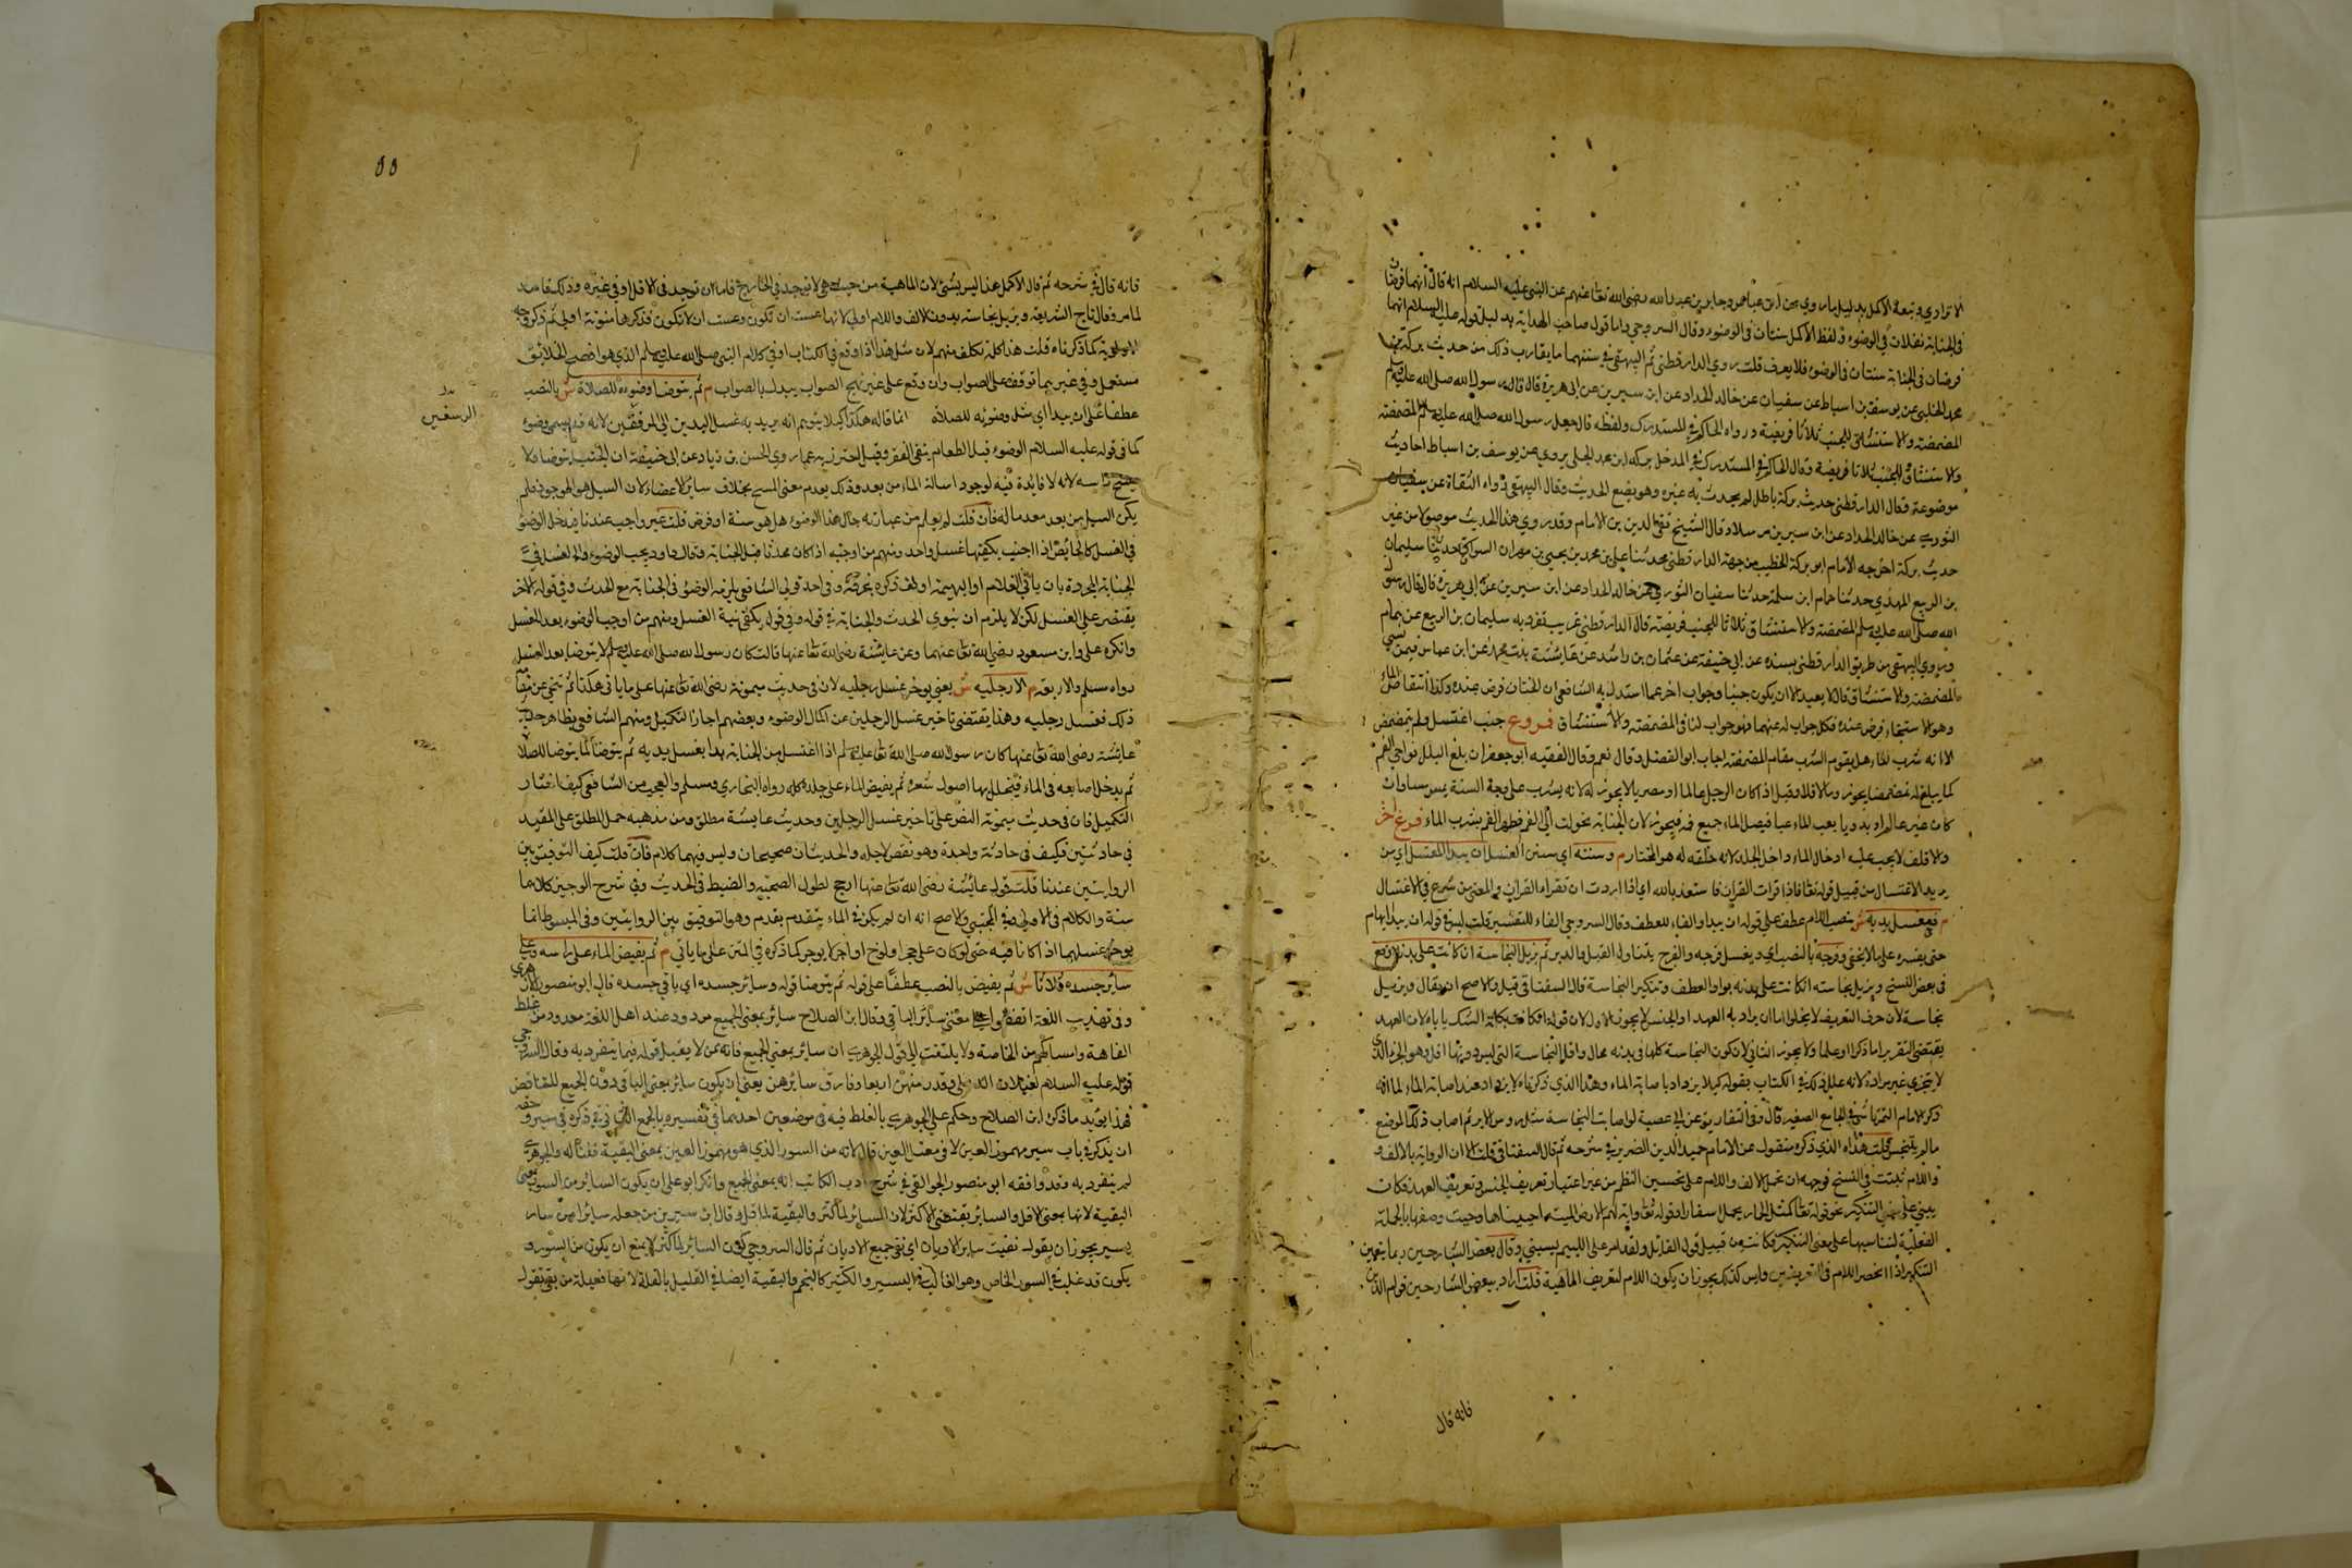 الاترازي وتبعه الاكمل بدليل ما روي عن ابن عباس وجابر بن عبد الله رضي الله تعا عنهم عن النبي عليه السلام انه قال انهما فرضان
في الجنابة نفلان في الوضوء ولفظ الاكمل سنتان في الوضوء وقال السروجي واما قول صاحب الهداية بدليل قوله عليه السلام انهما
فرضان في الجنابة سنتان في الوضوء فلا يعرف قلت روي الدارقطني ثم البيهقي في سننهما ما يقارب ذلك من حديث بركة بن
محمد الحلبي عن يوسف بن اسباط عن سفيان عن خالد الحذاد عن ابن سيرين عن ابي هريرة قال قال رسول الله صلى الله عليه وسلم
المضمضة والاستنشاق للجنب ثلاثا فريضة ورواه الحاكم في المستدرك ولفظه قال جعل رسول الله صلى الله عليه وسلم المضمضة
والاستنشاق للجنب ثلاثا فريضة وقال الحاكم في المدخل بركة ابن محمد الحلبي يروي عن يوسف بن اسباط احاديث
موضوعة وقال الدارقطني حديث بركة باطل لم يحدث به غيره وهو يضع الحديث وقال البيهقي رواه الثقاة عن سفيان
الثوري عن خالد الحداد عن ابن سيرين مرسلا وقال الشيخ تقي الدين بن الامام وقد روي هذا الحديث موصولا من غير
حديث بركة اخرجه الامام ابو بركة الخطيب من جهة الدارقطني محمد ثنا علي بن محمد بن يحيى بن مهران السواق حدثنا سليمان
بن الربيع المهدي حدثنا همام ابن سلمة حدثنا سفيان الثوري عن خالد الحداد عن ابن سيرين عن ابي هريرة قال قال رسول
الله صلى الله عليه وسلم المضمضة والاستنشاق ثلاثا للجنب فريضة قال الدارقطني غريب تفرد به سليمان بن الربيع عن همام
وروي البيهقي من طريق الدارقطني بسنده عن ابي حنيفة عن عثمان بن راشد عن عائشة بنت عجرد عن ابن عباس فيمن نسي
المضمضة والاستنشاق قال لا يعيد الا ان يكون جنبا وجواب اخر عما استدل به الشافعي ان الختان فرض عنده وكذا انتقاص الماء
وهو الاستنجاء فرض عنده فكل جواب له عنهما فهو جواب لنا في المضمضة والاستنشاق فروع جنب اغتسل ولم يتمضمض
الا انه شرب الماء هل يقوم الشرب مقام المضمضة اجاب ابو الفضل وقال نعم وقال الفقيه ابو جعفر ان بلغ البلل نواحي الفم
كما يبلغه تمضمضا يجوز والا فلا وقيل اذا كان الرجل عالما او مصريا لا يجوز له لانه يشرب على وجه السنة يمص مصا وان
كان غير عالم او بدويا يعب الماء عبا فيصل الماء جميع فمه فيجوز لان الجنابة تحولت الى الفم فطهر الفم بشرب الماء فرع آخر
والاقلف لا يجب عليه ادخال الماء داخل الجلد لانه خلقة له هو المختار م وسنته اي سنن الغسل ان يبدا المغتسل اي من
يريد الاغتسال من قبيل قوله تعا فاذا قرات القران فاستعذ بالله اي اذا اردت ان تقرا القران والمعنى من شرع في الاغتسال
م فيغسل يديه ش بنصب اللام عطف على قوله ان يبدا والفاء للعطف وقال السروجي الفاء للتفسير قلت ليس في قوله ان يبدا ابهام
حتى يفسره على ما لا يخفى وفرجه بالنصب اي ويغسل فرجه والفرج يتناول القبل والدبر ثم يزيل النجاسة ان كانت على بدنه وقع
في بعض النسخ ويزيل نجاسته ان كانت على بدنه بواو العطف وتنكير النجاسة قال السفناقي قيل والاصح ان يقال ويزيل
نجاسة لان حرف التعريف لا يخلو اما ان يراد به العهد او الجنس لا يجوز الاول لان قوله ان كانت بكلمة الشك ياباه لان العهد
يقتضي التقرير اما ذكرا او علما ولا يجوز الثاني لان كون النجاسة كلها في بدنه محال واقل النجاسة التي ليس دونها اقل وهو الجزء الذي
لا يتجزي غير مراد لانه علل ذلك في الكتاب بقوله كيلا يزداد باصابة الماء وهذا الذي ذكرناه لا يزداد عند اصابة الماء لما انه
ذكر الامام التمرتاشي في الجامع الصغير قال وفي المتفاريق عن ابي عصمة لو اصابت النجاسة مثل روس الابر ثم اصاب ذلك الموضع
ماء لم ينجس قلت هذا الذي ذكره منقول عن الامام حميد الدين الضرير في شرحه ثم قال السفناقي قلت الا ان الرواية بالالف و
واللام ثبتت في النسخ فوجهه ان تحمل الالف واللام على تحسين النظم من غير اعتبار تعريف الجنس وتعريف العهد فكان
يبني على معنى التنكير نحو قوله تعا كمثل الحمار يحمل اسفارا وقوله تعا واية لهم الارض الميتة احييناها وحيث وصفها بالجملة
الفعلية لتناسبها على معنى التنكير فكانت من قبيل قول القائل ولقد امر على اللئيم يسبني وقال بعض الشارحين ربما يتعين
التنكير اذا انحصر اللام في التعريفين وليس كذلك يجوز ان يكون اللام لتعريف الماهية قلت اراد ببعض الشارحين قوام الدين
فانه قال
فانه قال في شرحه ثم قال الاكمل هذا ليس بشئ لان الماهية من حيث هي لا توجد في الخارج فاما ان توجد في الاقل او في غيره وذلك فاسد
لما مر وقال تاج الشريعة ويزيل نجاسة بدون الالف واللام اولى لانها عست ان تكون وعست ان لا تكون فذكرها منونة اولى ثم ذكر وجه
الاولوية كما ذكرناه قلت هذا كله تكلف منهم لان مثل هذا اذا وقع في الكتاب او في كلام النبي صلى الله عليه وسلم الذي هو افصح الخلائق
مستعمل وفي غيرهما توقف على الصواب وان وقع على غير نهج الصواب يبدل بالصواب م ثم يتوضا وضوءه للصلاة ش بالنصب
عطفا على ان يبدا اي مثل وضوئه للصلاة انما قاله هكذا كيلا يتوهم انه يريد به غسل اليدين الى المرفقين لانه قد يسمى وضوء
الرسغين
كما في قوله عليه السلام الوضوء قبل الطعام ينفي الفقر وقيل احترز به عما روي الحسن بن زياد عن ابي حنيفة ان الجنب يتوضا ولا
يمسح راسه لانه لا فايدة فيه لوجود اسالة الماء من بعد وذلك يعدم معنى المسح بخلاف سائر الاعضاء لان السيل هو الموجود فلم
يكن السيل من بعد معدما له فان قلت لم يعلم من عبارته حال هذا الوضوء هل هو سنة او فرض قلت غير واجب عندنا فيدخل الوضوء
في الغسل كالحائض اذا اجنبت يكفيها غسل واحد ومنهم من اوجبه اذا كان محدثا قبل الجنابة وقال داود يجب الوضوء والغسل في
الجنابة المجردة بان ياتي الغلام او البهيمة او لف ذكره بخرقة وفي احد قولي الشافعي يلزمه الوضوء في الجنابة مع الحدث وفي قوله الاخر
يقتصر على الغسل لكن لا يلزم ان ينوي الحدث والجنابة في قوله وفي قول يكفي نية الغسل ومنهم من اوجب الوضوء بعد الغسل
وانكره علي وابن مسعود رضي الله تعا عنهما وعن عائشة رضي الله تعا عنها قالت كان رسول الله صلى الله عليه وسلم لا يتوضا بعد الغسل
رواه مسلم والاربعة م الا رجليه ش يعني يوخر غسل رجليه لان في حديث ميمونة رضي الله تعا عنها على ما ياتي هكذا ثم تنحى عن مقامه
ذلك فغسل رجليه وهذا يقتضي تاخير غسل الرجلين عن اكمال الوضوء وبعضهم اجازا لتكميل ومنهم الشافعي بظاهر حديث
عائشة رضي الله تعا عنها كان رسول الله صلى الله تعا عليه وسلم اذا اغتسل من الجنابة بدا بغسل يديه ثم يتوضا كما يتوضا للصلاة
ثم يدخل اصابعه في الماء فيخلل بها اصول شعره ثم يفيض الماء على جلده كله رواه البخاري ومسلم والعجب من الشافعي كيف اختار
التكميل فان في حديث ميمونة النص على تاخير غسل الرجلين وحديث عايشة مطلق ومن مذهبه حمل المطلق على المقيد
في حادثتين فكيف في حادثة واحدة وهو نقض لاصله والحديثان صحيحان وليس فيهما كلام فان قلت كيف التوفيق بين
الروايتين عندنا قلت قول عائشة رضي الله تعا عنها ارجح لطول الصحبة والضبط في الحديث وفي شرح الوجيز كلاهما
سنة والكلام في الاولى وفي المجتبى والاصح انه ان لم يكن في الماء يتقدم بقدم وهو التوفيق بين الروايتين وفي المبسوط انما
يوخر غسلهما اذا كانا فيه حتى لو كان على حجر او لوح او آجر لا يوخر كما ذكره في المتن على ما ياتي م ثم يفيض الماء على راسه وعلى
سائر جسده ثلاثا ش ثم يفيض بالنصب عطفا على قوله ثم يتوضا قوله وسائر جسده اي باقي جسده قال ابو منصور الازهري
وفي تهذيب اللغة اتفقوا على معنى سائر الباقي وقال ابن الصلاح سائر بمعنى الجميع مردود عند اهل اللغة معدود من غلط
العامة واشباههم من الخاصة ولا يلتفت الى قول الجوهري ان سائر بمعنى الجميع فانه ممن لا يقبل قوله فيما ينفرد به وقال السروجي
قوله عليه السلام لغيلان امسك اربعا وفارق سائرهن يعني ان يكون سائر بمعنى الباقي دون الجميع للتناقض
فهذا يؤيد ما ذكره ابن الصلاح وحكم على الجوهري بالغلط فيه في موضعين احدهما في تفسيره بالجميع الثاني في ذكره في سير وحقه
ان يذكر في باب سير مهموز العين لا في معتل العين قال لانه من السور الذي هو مهموز العين بمعنى البقية قلنا له والجوهري
لم ينفرد به وقد وافقه ابو منصور الجواليقي في شرح ادب الكاتب انه بمعنى الجميع وانكر ابو علي ان يكون السائر من السور بمعنى
البقية لانها بمعنى الاقل والسائر يقتضي الاكثر لان السائر لما كثر والبقية لما قل وقال ابن سيرين من جعله سائرا من سار
يسير يجوز ان يقول نفيت سائر الاديان اي نفى جميع الاديان ثم قال السروجي كون السائر لما كثر لا يمنع ان يكون من السور و
يكون قد غلب في السور الخاص وهو الغالب في اليسير والكثير كالنجم والبقية ايضا في القليل بالغلبة لانها فعيلة من بقي تقول